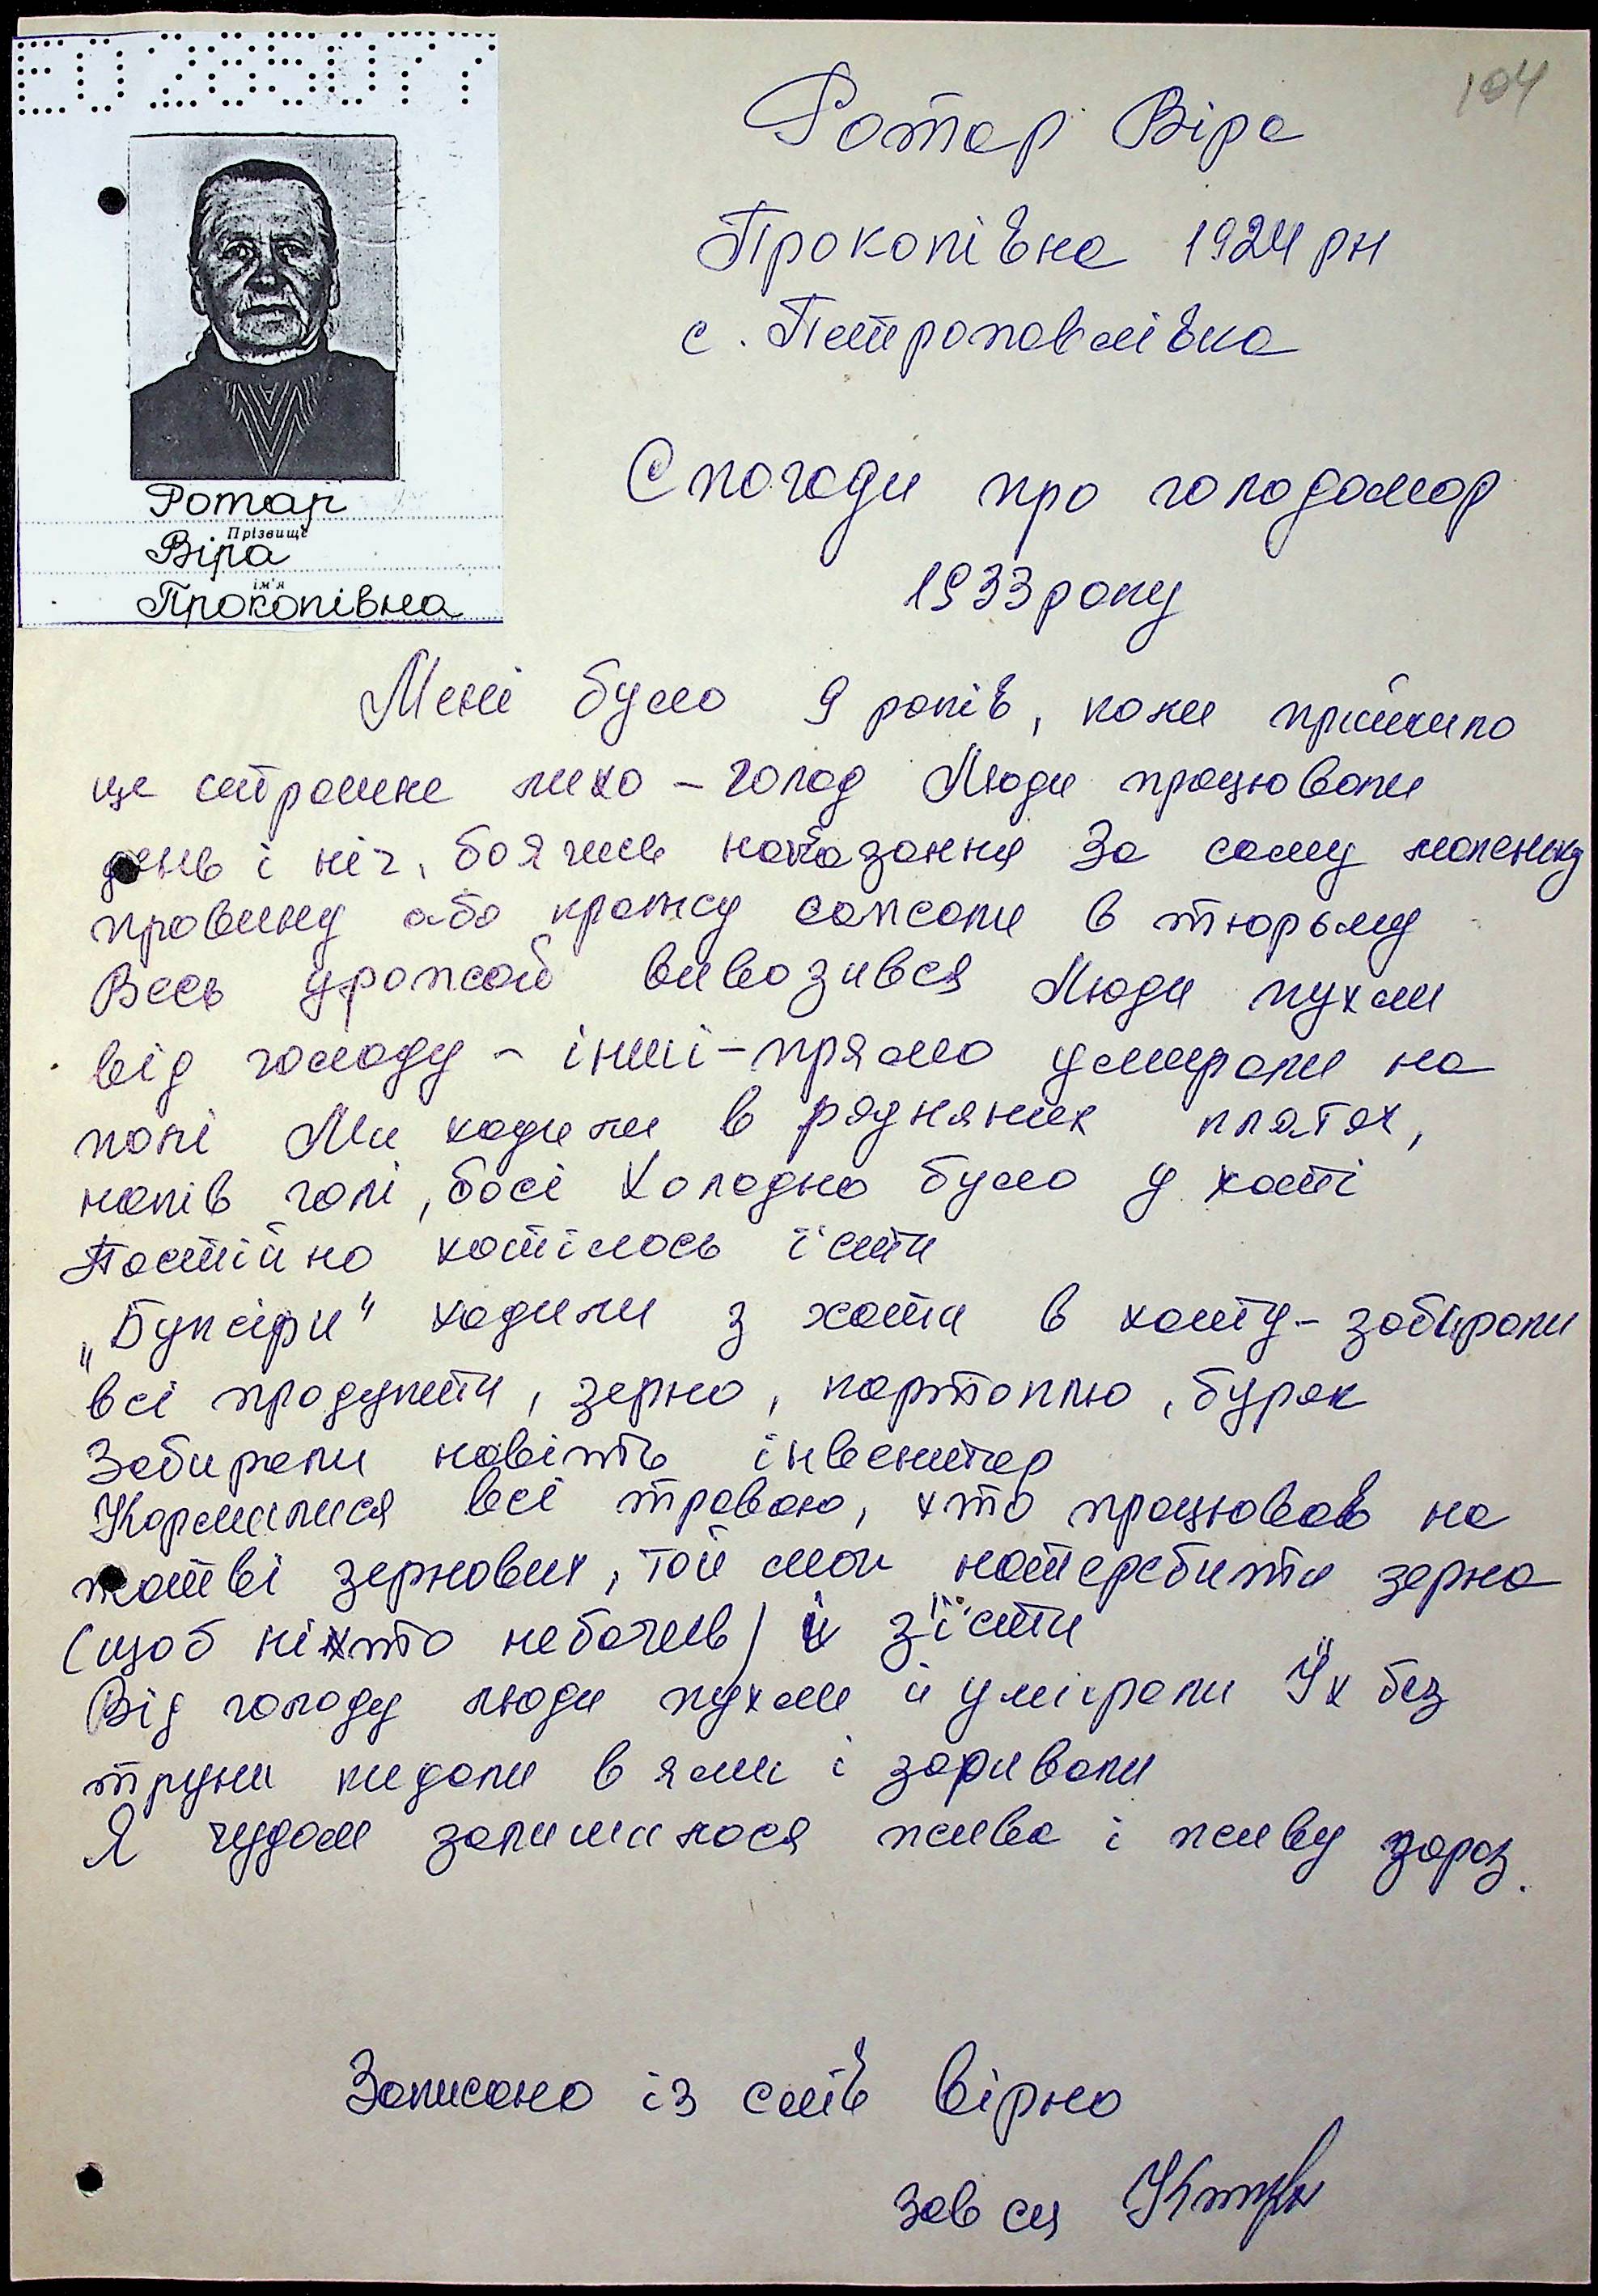 ЕО 285077
104
Ротар
Прізвище
Віра
ім'я
Прокопівна
Ротар Віра
Прокопівна 1924 рн
с. Петропавлівка
Спогади про голодомор
1933 року
Мені було 9 років, коли прийшло
це страшне лихо – голод Люди працювали
день і ніч, боячись наказання За саму маленьку
провину або кражу сажали в тюрьму
Весь урожай вивозився Люди пухли
від голоду – інші – прямо умирали на
полі Ми ходили в рядняних платях,
напів голі, босі Холодно було у хаті
Постійно хотілось їсти
„Буксіри“ ходили з хати в хату – забирали
всі продукти, зерно, картоплю, буряк
Забирали навіть інвентар
Кормилися всі травою, хто працював на
жатві зернових, той мог натеребити зерна
(щоб ніхто небачив) й з'їсти
Від голоду люди пухли й умірали Їх без
труни кидали в ями і заривали
Я чудом залишилася жива і живу зараз.
Записано із слів вірно
Зав